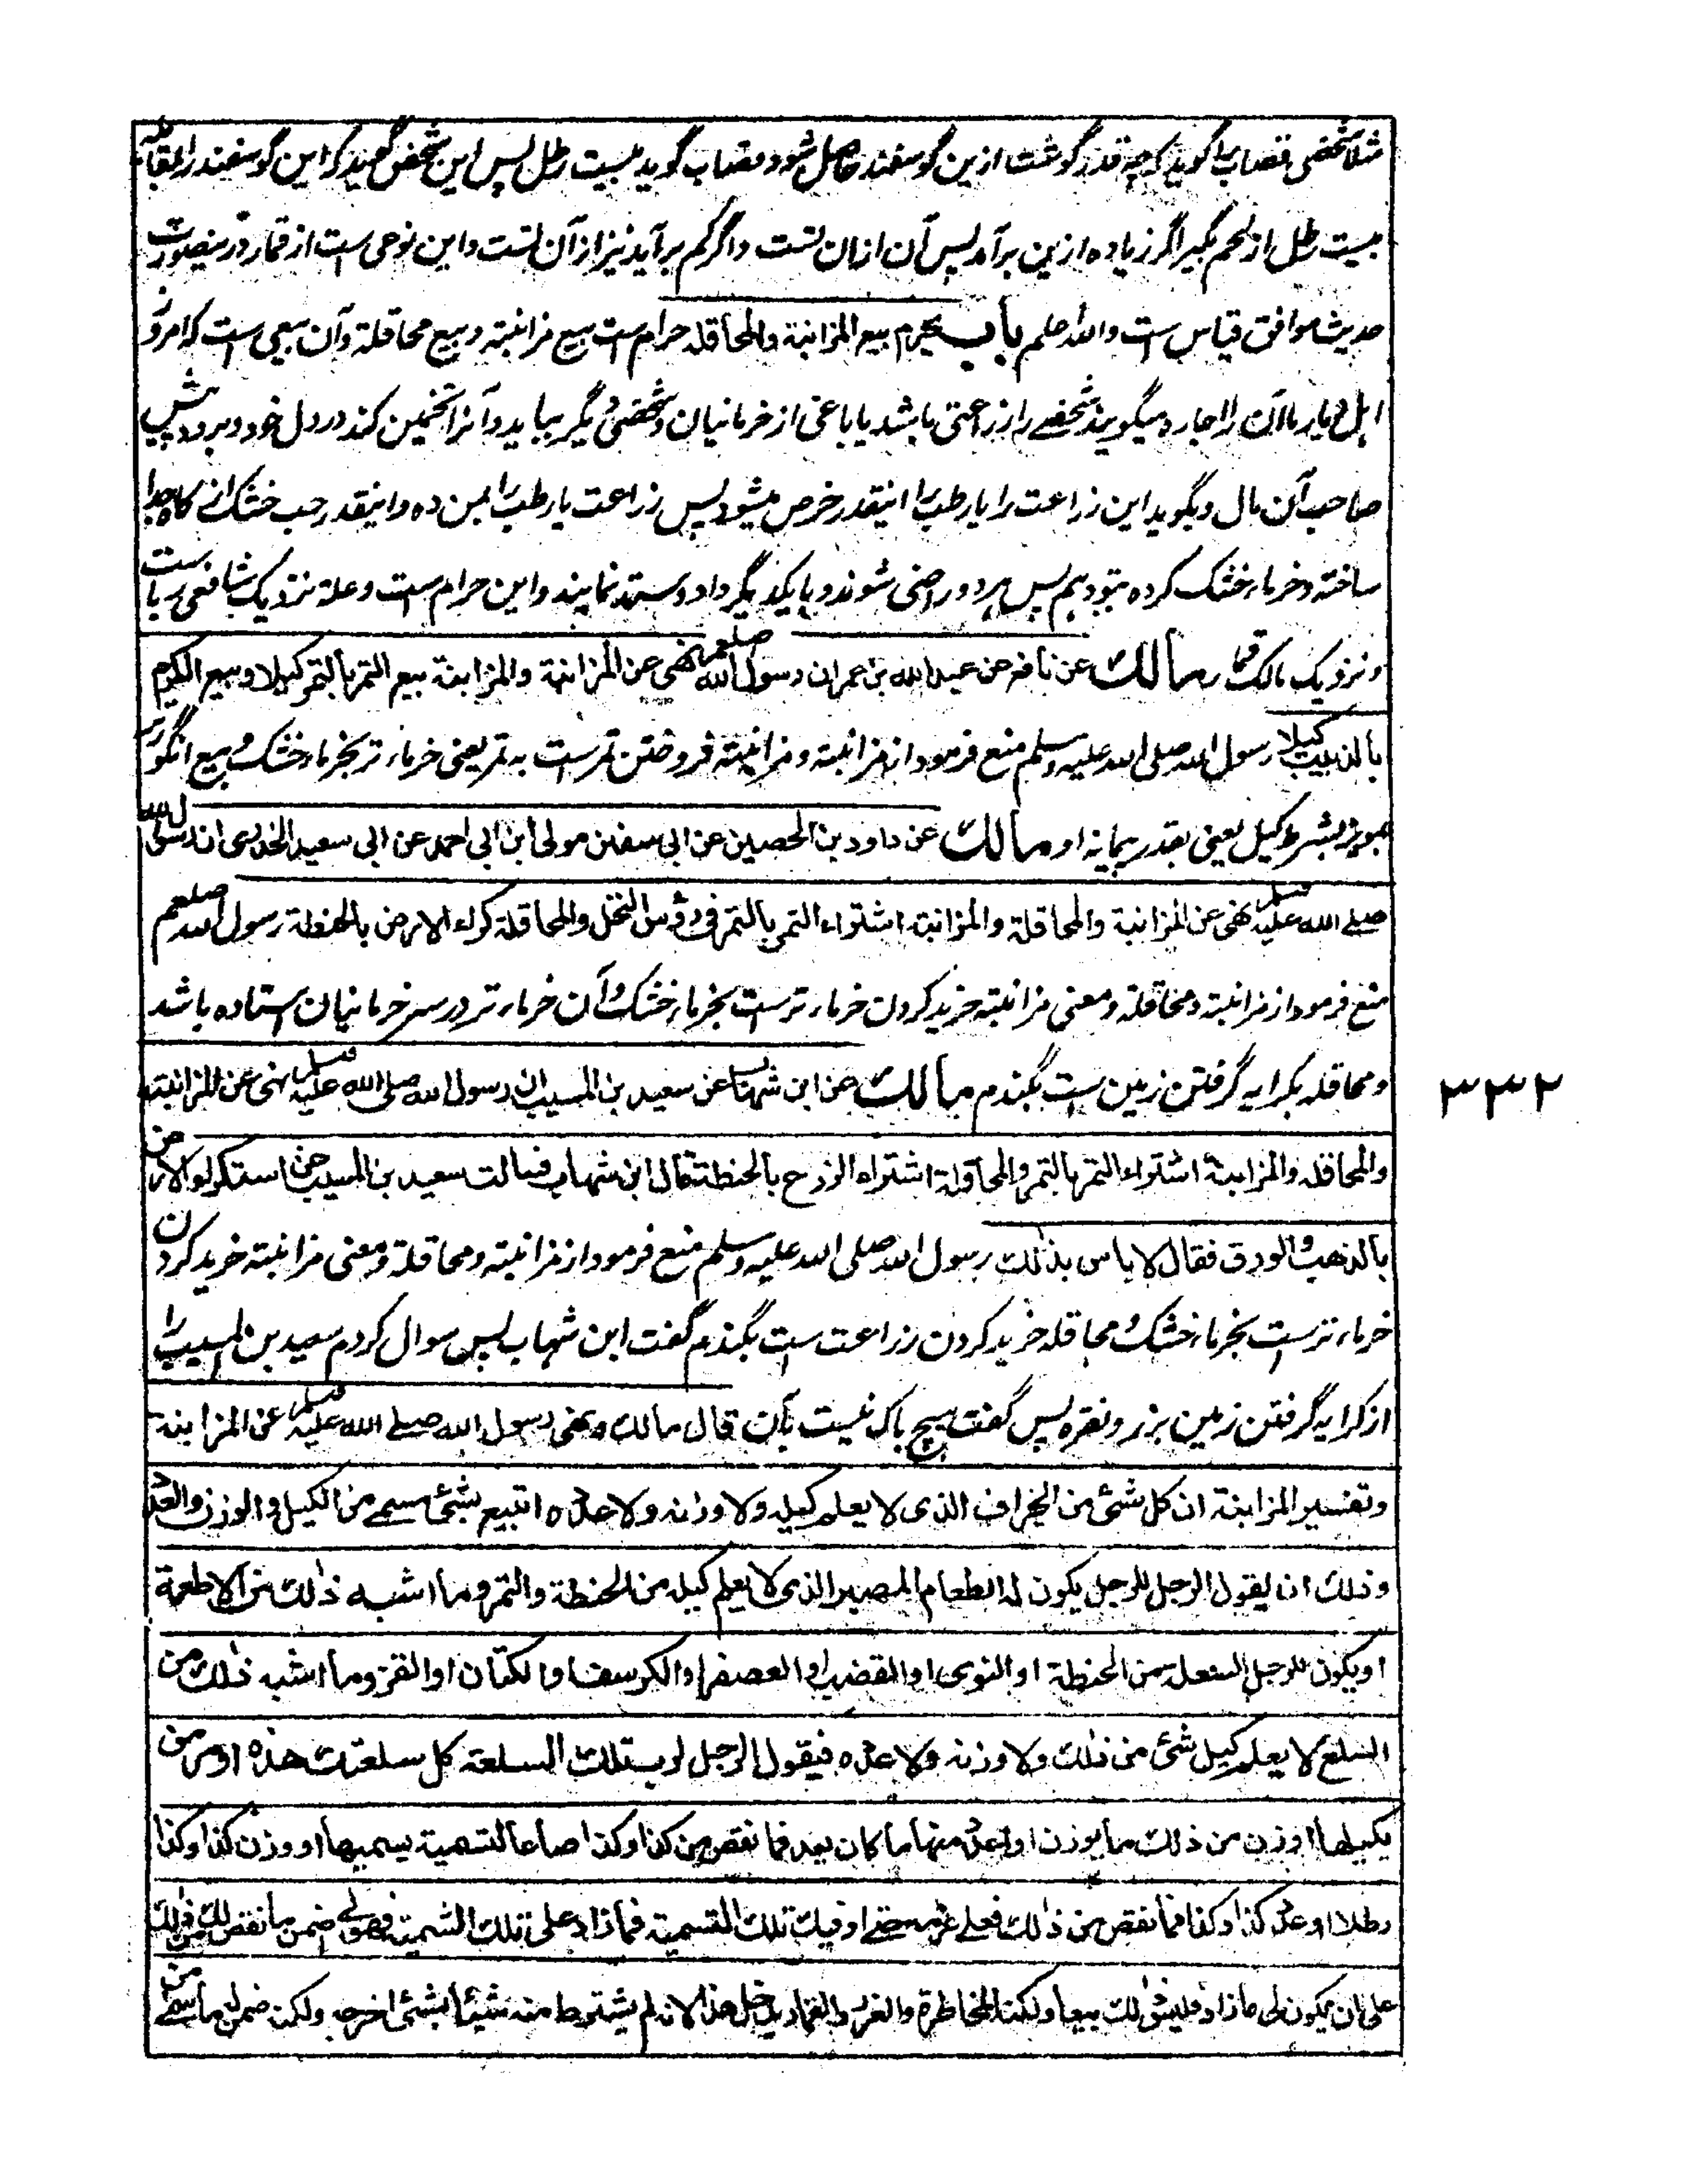 مثلا شخصی قصاب را گوید که چه قدر گوشت ازین گوسفند حاصل شود و قصاب گوید بیست رطل پس این شخص گوید که این گوسفند را بمقابله
بیست رطل از لحم بگیر اگر زیاده ازین برآمد پس آن ازان تست و اگر کم برآید نیز از آن تست و این نوعی ست از قمار درینصورت
حدیث موافق قیاس ست والله اعلم باب یحرم بیع المزابنة والمحاقله حرام ست بیع مزابنته و بیع محاقلة و آن بیعی ست که امروز
اهل دیار ما آن را اجاره میگویند شخصے را زراعتی باشد یا باغی از خرمانیان و شخصی دیگر بیاید و آنرا تخمین کند در دل خود و برود پیش
صاحب آن مال و بگوید این زراعت را یا رطب را اینقدر خرص میشود پس زراعت یا رطب را بمن ده و اینقدر حب خشک از کاه جدا
ساخته و خرماء خشک کرده بتو دهم پس هر دو راضی شوند و با یکدیگر داد و ستد نمایند و این حرام ست و علة نزدیک شافعی ربا ست
و نزدیک مالک قمار مالك عن نافع عن عبد الله بن عمر ان رسول الله صلعم نهی عن المزابنة والمزابنة بیع الثمر بالتمر کیلا وبیع الکرم
بالزبیب کیلا رسول الله صلی الله علیه وسلم منع فرمود از مزابنته و مزابنته فروختن ثمرست به تمر یعنی خرماء تر بخرماء خشک و بیع انگور
بمویز بشرط کیل یعنی بقدر پیمانه او مالك عن داود بن الحصین عن ابی سفین مولی ابن ابی احمد عن ابی سعید الخدری ان رسول الله
صلے الله علیه وسلم نهی عن المزابنة والمحاقلة والمزابنة اشتراء الثمر بالتمر فی رؤس النخل والمحاقلة کراء الارض بالحنطة رسول الله صلعم
منع فرمود از مزابنته و محاقلة و معنی مزابنته خرید کردن خرماء ترست بخرماء خشک و آن خرماء تر در سر خرمانیان استاده باشد
و محاقله بکرایه گرفتن زمین ست بگندم مالك عن ابن شهاب عن سعید بن المسیب ان رسول الله صلی الله علیه وسلم نهی عن المزابنته
۳۳۲
والمحاقله والمزابنة اشتراء الثمر بالتمر والمحاقلة اشتراء الزرع بالحنطة قال ابن شهاب فسالت سعید بن المسیب عن استکراء الارض
بالذهب والورق فقال لا باس بذلك رسول الله صلی الله علیه وسلم منع فرمود از مزابنته و محاقلة و معنی مزابنته خرید کردن
خرماء ترست بخرماء خشک و محاقله خرید کردن زراعت ست بگندم گفت ابن شهاب پس سوال کردم سعید بن المسیب را
از کرایه گرفتن زمین بزر و نقره پس گفت هیچ باک نیست بآن قال مالك ونهی رسول الله صلے الله علیه وسلم عن المزابنة
وتفسیر المزابنة ان کل شئ من الجزاف الذی لا یعلم کیله ولا وزنه ولا عدده ابتیع بشئ مسمے من الکیل والوزن والعدد
وذلك ان یقول الرجل للرجل یکون له الطعام المصبر الذی لا یعلم کیله من الحنطة والتمر وما اشبه ذلك من الاطعمة
او یکون للرجل السلعة من الحنطة او النوی او القضب او العصفر او الکرسف او الکتان او القز وما اشبه ذلك من
السلع لا یعلم کیل شئ من ذلك ولا وزنه ولا عدده فیقول الرجل لرب تلك السلعة کل سلعتك هذه او مر من
یکیلها او زن من ذلك ما یوزن او اعدد منها ما کان یعد فما نقص من کذا وکذا صاعا لتسمیة یسمیها او وزن کذا وکذا
رطلا او عدد کذا وکذا فما نقص من ذلك فعلے غرمه حتے اوفیك تلك التسمیة فما زاد علی تلك التسمیة فهو لے اضمن ما نقص لك من ذلك
علی ان یکون لی ما زاد فلیس ذلك بیعا ولکنه المخاطرة والغرر والقمار یدخل هذا لانه لم یشتر منه شیئا بشئ اخرجه ولکنه ضمن له ما سمی من